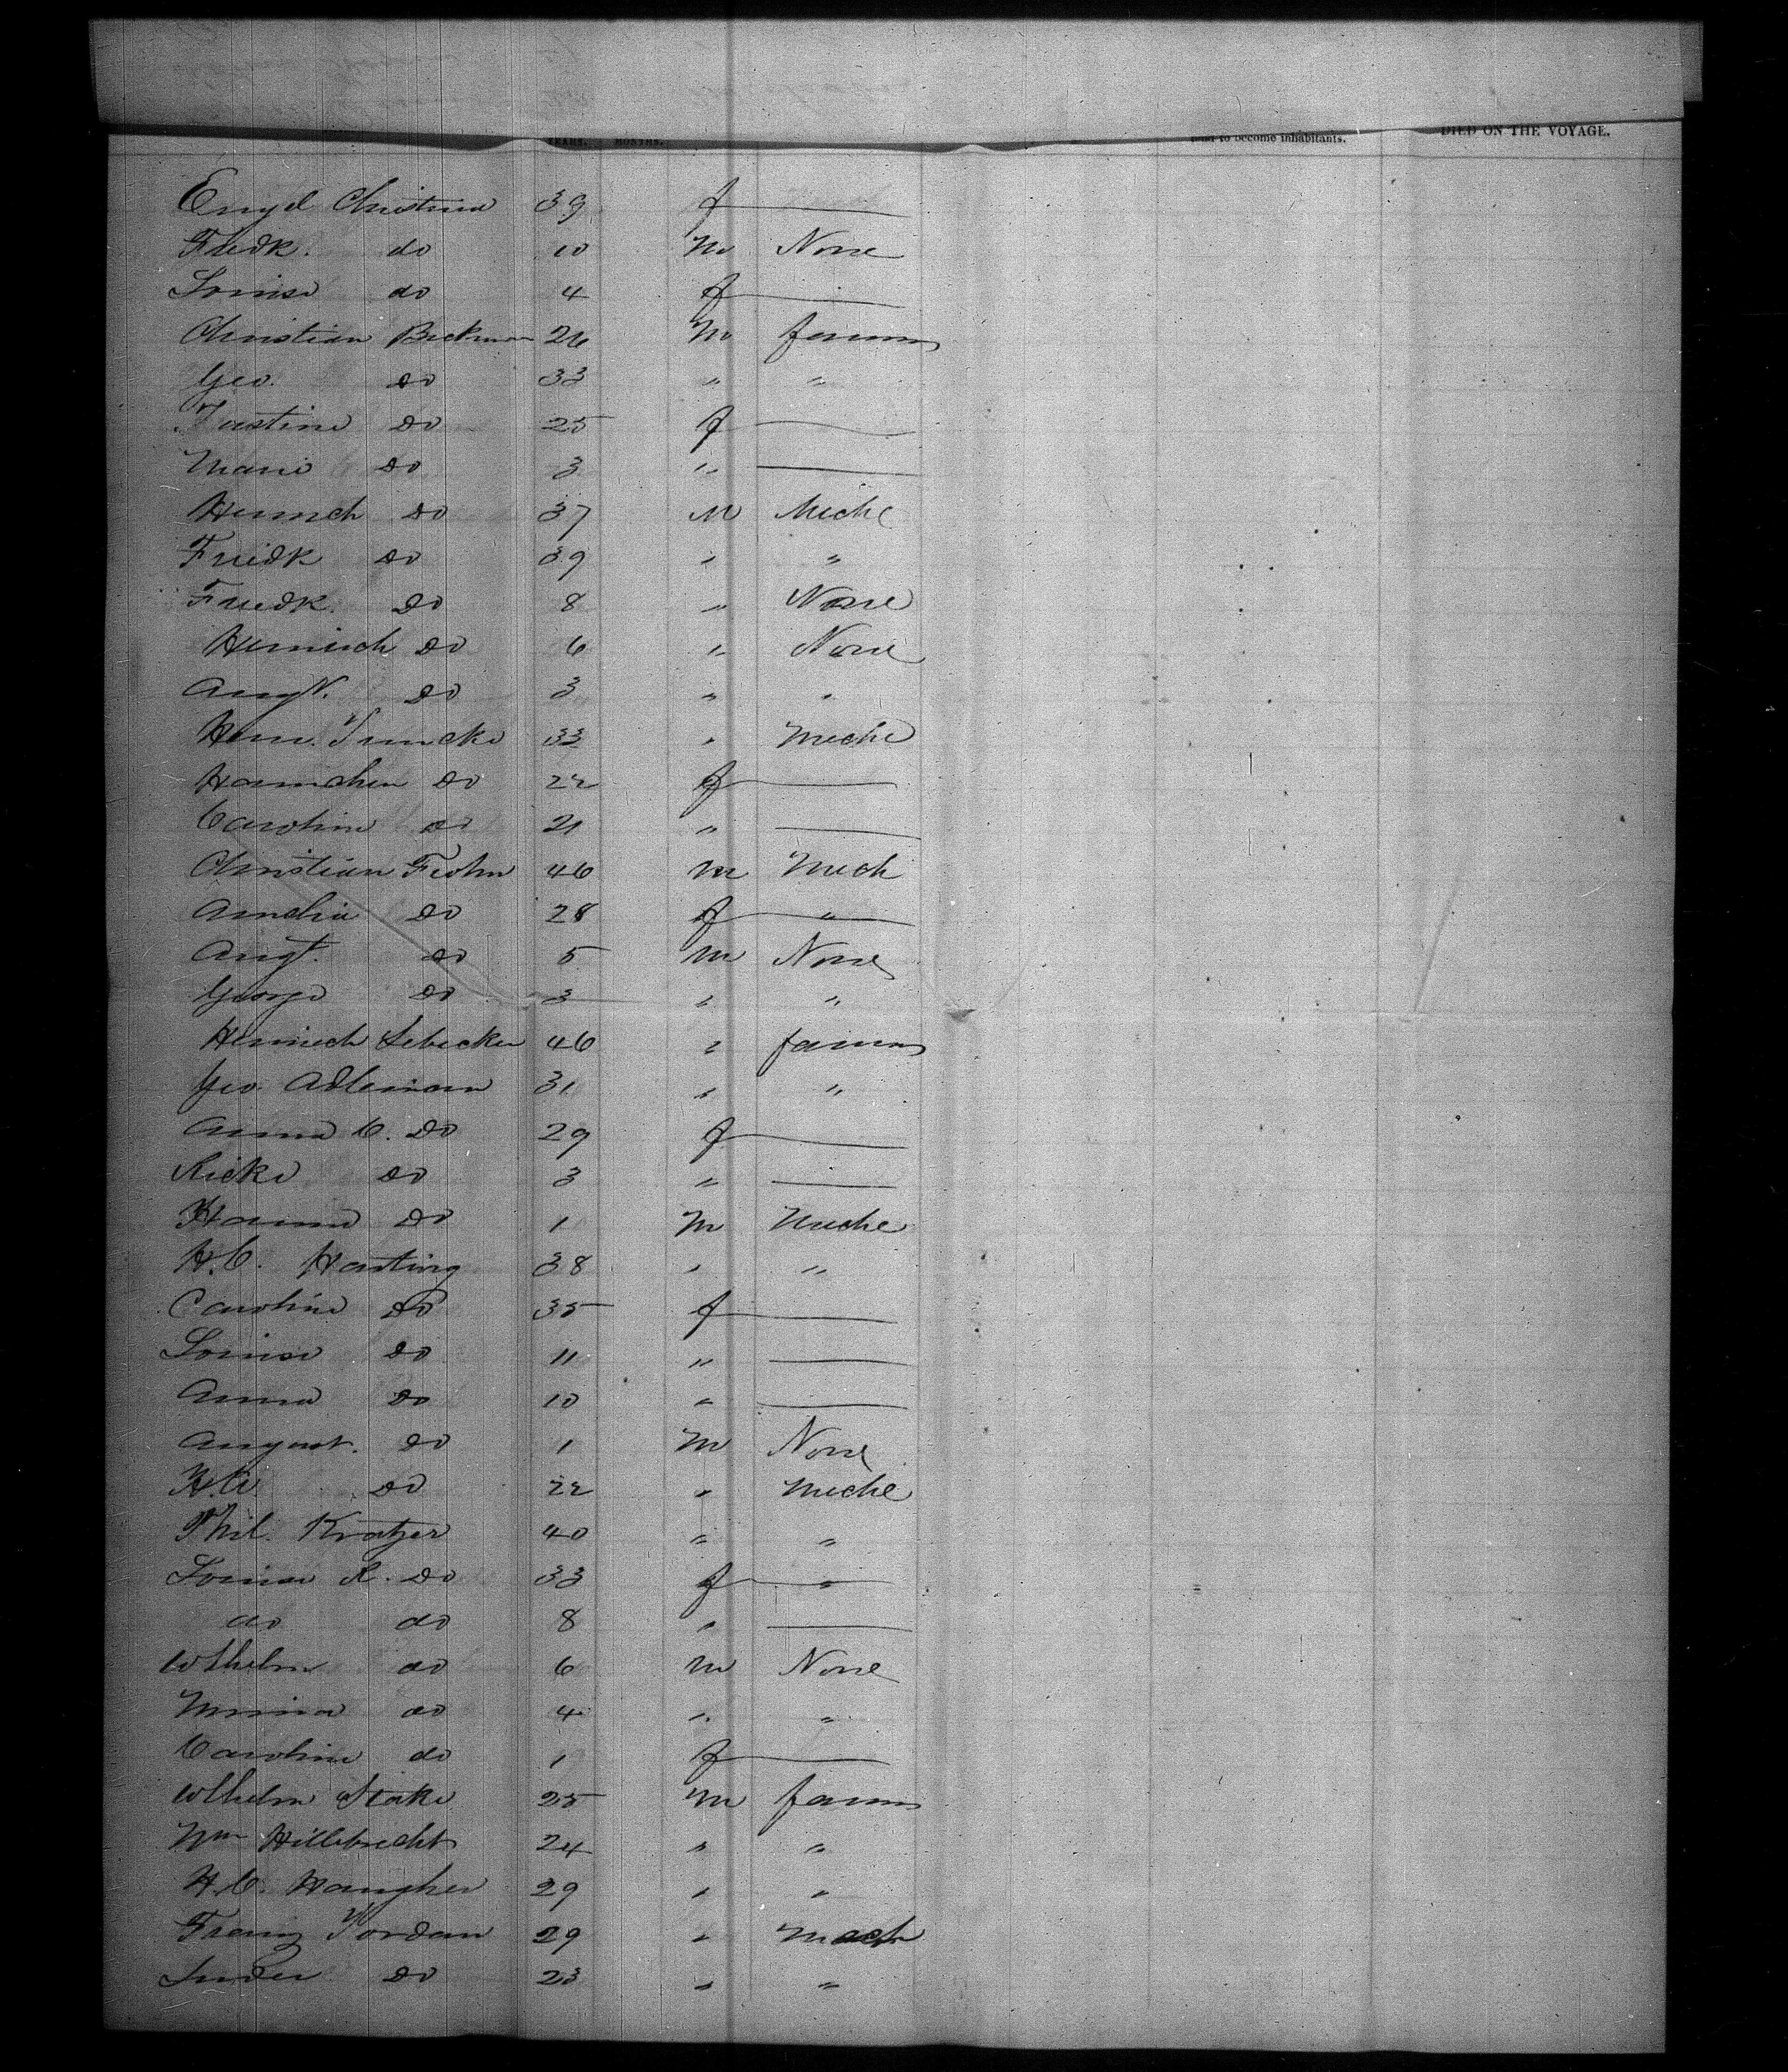 YEARS. MONTHS. to become inhabitants. DIED ON THE VOYAGE.
Engel Christina 39 f
Friedk. do 10 m None
Louise do 4 f
Christian Beckman 26 m farmer
Geo. do 33 " "
Justine do 25 f
Marie do 3 "
Heinrich do 37 M Mechc
Friedk do 39 " "
Friedk. do 8 " None
Heinrich do 6 " None
Augt. do 3 " "
33 " Mechc
Hannchen do 22 f
Caroline do 21 "
Christian Frohn 46 m Mech
Amelia do 28 f "
Augt. do 5 m None
George do 3 " "
Heinrich 46 " farmer
Geo. Adleman 31 " "
Anna C. do 29 f
Ricke do 3 "
Hanna do 1 m Mechc
H.C. Harting 38 " "
Caroline do 35 f
Louise do 11 "
Anna do 10 "
August. do 1 m None
do 22 " Mechc
Phil. Kratzer 40 " "
Louise R. do 33 f "
do do 8 "
Wlhelm do 6 m None
Minna do 4 " "
Caroline do 1 f
Wlhelm Stake 25 m farmer
Wm Hillebrecht 24 " "
H.C. 29 " "
Franz Jordan 29 " Mech
do 23 " "